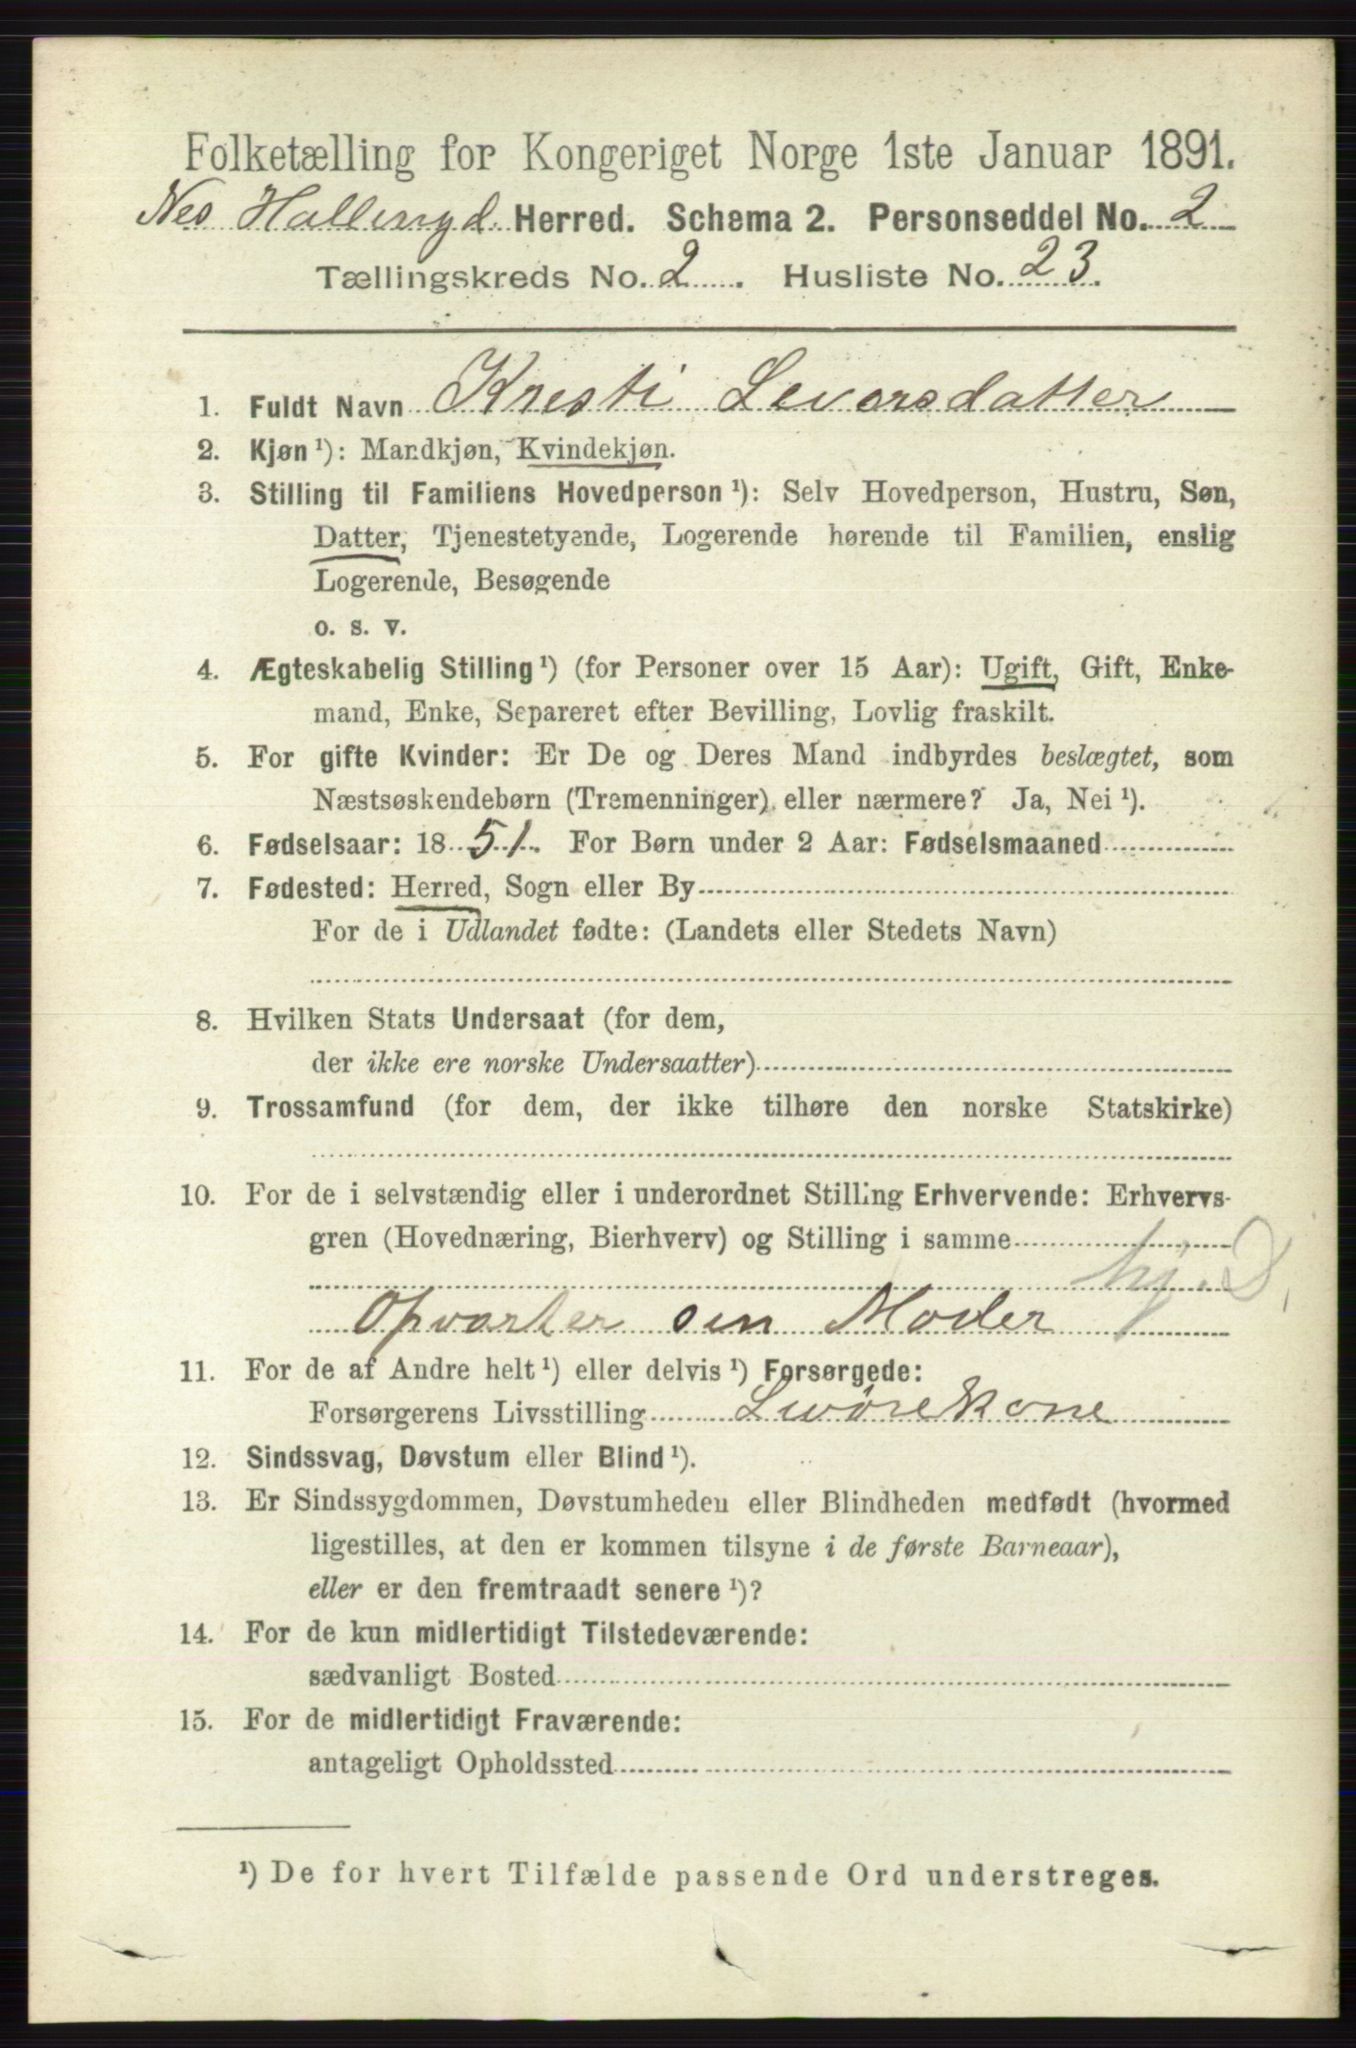 Folketælling for Kongeriget Norge 1ste Januar 1891.
Nes Hallingd. Herred. Schema 2. Personseddel No. 2
Tællingskreds No. 2. Husliste No. 23.
1. Fuldt Navn Kristi Levorsdatter
2. Kjøn ¹): Mandkjøn, Kvindekjøn.
3. Stilling til Familiens Hovedperson ¹): Selv Hovedperson, Hustru, Søn,
Datter, Tjenestetyende, Logerende hørende til Familien, enslig
Logerende, Besøgende
o. s. v.
4. Ægteskabelig Stilling ¹) (for Personer over 15 Aar): Ugift, Gift, Enke-
mand, Enke, Separeret efter Bevilling, Lovlig fraskilt.
5. For gifte Kvinder: Er De og Deres Mand indbyrdes beslægtet, som
Næstsøskendebørn (Tremenninger) eller nærmere? Ja, Nei ¹).
6. Fødselsaar: 1851. For Børn under 2 Aar: Fødselsmaaned
7. Fødested: Herred, Sogn eller By
For de i Udlandet fødte: (Landets eller Stedets Navn)
8. Hvilken Stats Undersaat (for dem,
der ikke ere norske Undersaatter)
9. Trossamfund (for dem, der ikke tilhøre den norske Statskirke)
10. For de i selvstændig eller i underordnet Stilling Erhvervende: Erhvervs-
gren (Hovednæring, Bierhverv) og Stilling i samme
hj. D.
Opvarter sin Moder
11. For de af Andre helt ¹) eller delvis ¹) Forsørgede:
Forsørgerens Livsstilling
12. Sindssvag, Døvstum eller Blind ¹).
13. Er Sindssygdommen, Døvstumheden eller Blindheden medfødt (hvormed
ligestilles, at den er kommen tilsyne i de første Barneaar),
eller er den fremtraadt senere ¹)?
14. For de kun midlertidigt Tilstedeværende:
sædvanligt Bosted
15. For de midlertidigt Fraværende:
antageligt Opholdssted
¹) De for hvert Tilfælde passende Ord understreges.